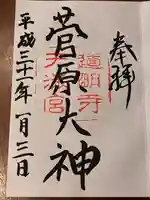 奉拝
道明寺
天満宮
菅原大神
平成三十一年一月二日